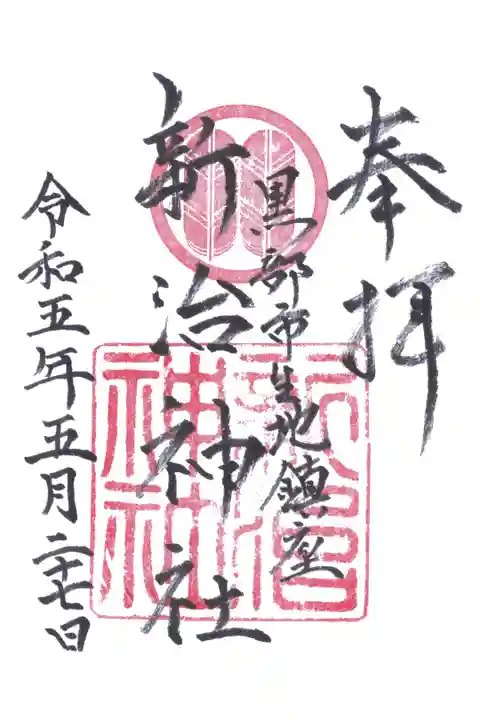 奉拝
黒部市生地鎮座
新治神社
新治神社
令和五年五月二十七日